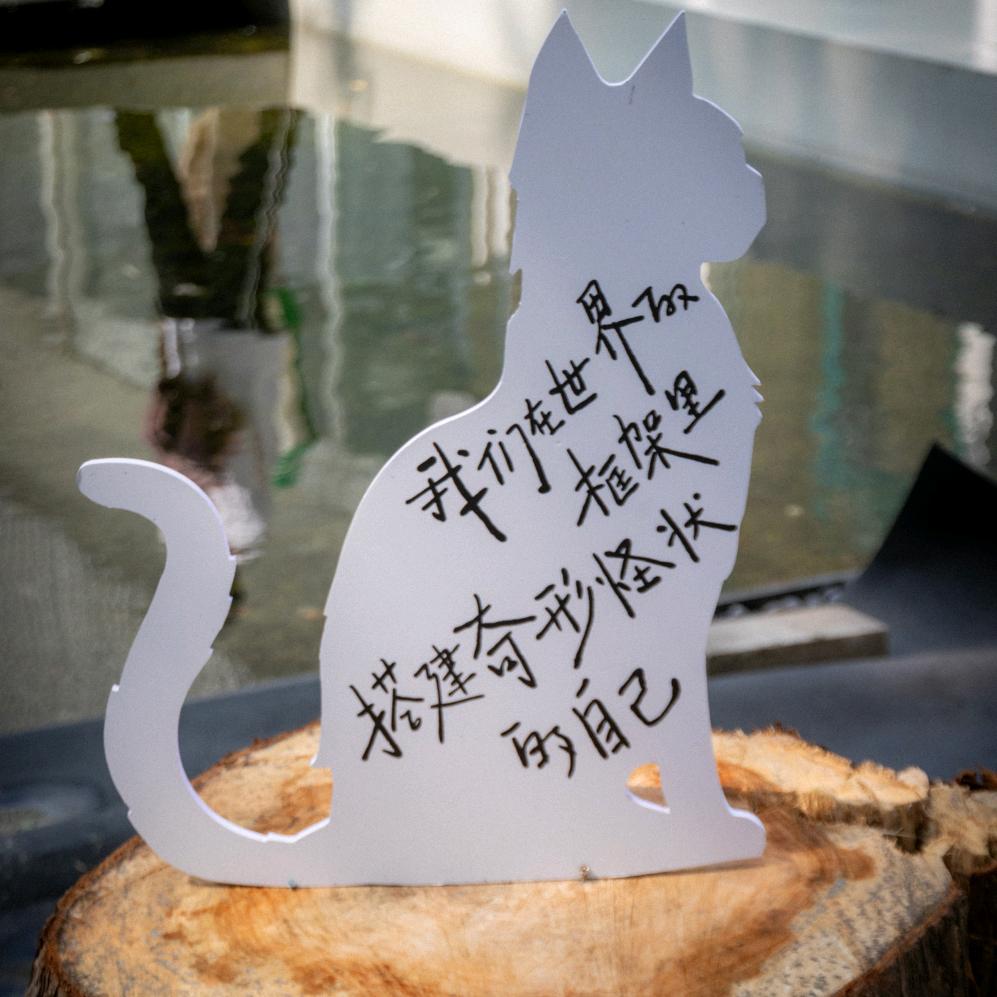 我们在世界的
框架里
搭建奇形怪状
的自己